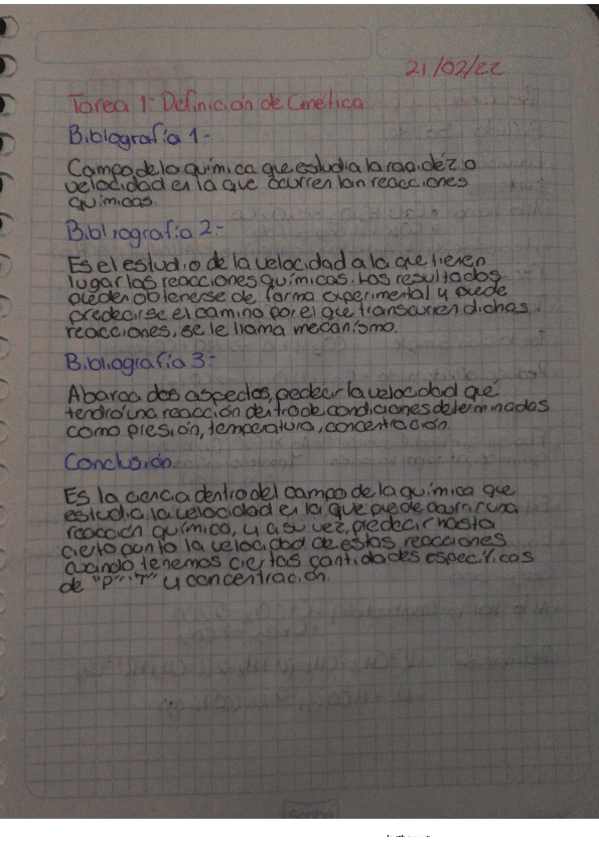 21/02/22
Tarea 1: Definición de Cinética
Bibliografía 1-
Campo de la química que estudia la rapidéz o
velocidad en la que ocurren lan reacciones
químicas.
Bibliografía 2-
Es el estudio de la velocidad a la que tienen
lugar las reacciones químicas. Los resultados
pueden obtenerse de forma experimental y puede
predecirse el camino por el que transcurren dichas
reacciones, se le llama mecanísmo.
Bibliografía 3-
Abarca dos aspectos, predecir la velocidad que
tendrá una reacción dentro de condiciones determinadas
como presión, temperatura, concentración.
Conclusión.
Es la ciencia dentro del campo de la química que
estudia la velocidad en la que puede ocurrir una
reacción química, y a su vez, predecir hasta
cierto punto la velocidad de estas reacciones
cuando tenemos ciertas cantidades específicas
de "P" "T" y concentración.
scribe